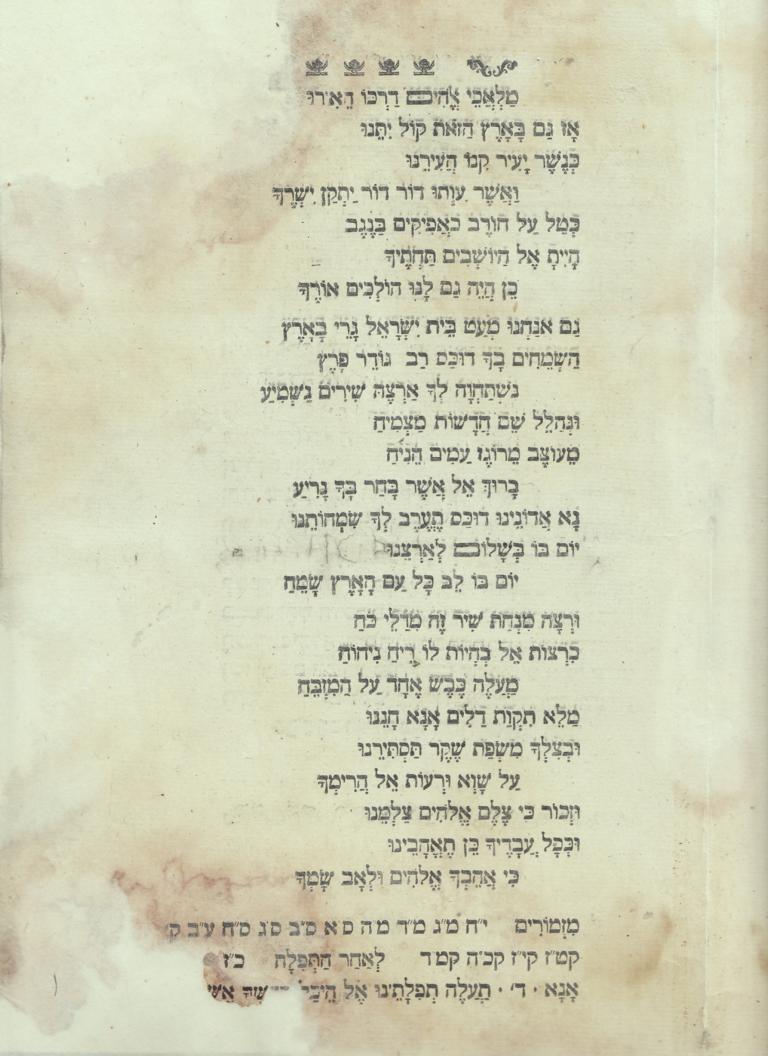 מַלְאֲכֵי אֱלֹהִים דַרְכּוֹ הֵאִירוּ
אָז גַם בָּאָרֶץ הַזֹּאת קוֹל יִתְּנוּ
כְּנֶשֶׁר יָעִיר קִנּוֹ הֲעִירֵנוּ
וַאֲשֶׁר עִוְּתוּ דוֹר דוֹר יְתַקֵּן יִשְׁרֶךָ
כְּטַל עַל חוֹרֵב כַּאֲפִיקִים בַּנֶּגֶב
הָיִיתָ אֶל הַיּוֹשְׁבִים תַּחְתֶּיךָ
כֵּן הֱיֵה גַם לָנוּ הוֹלְכִים אוֹרֶךָ
גַם אֲנַחְנוּ מְעַט בֵּית יִשְׂרָאֵל גָּרֵי בָאָרֶץ
הַשְּׂמֵחִים בָּךְ דוּכַּס רַב גּוֹדֵר פֶּרֶץ
נִשְׁתַּחֲוֶה לְךָ אַרְצָה שִׁירִים נַשְׁמִיעַ
וּנְהַלֵּל שֵׁם חֲדָשׁוֹת מַצְמִיחַ
מֵעוֹצֶב מֵרוֹגֶז עַמִּים הֵנִיחַ
בָּרוּךְ אֵל אֲשֶׁר בָּחַר בְּךָ נָרִיעַ
נָא אֲדוֹנֵינוּ דוּכַּס תֶּעֱרַב לְךָ שִׂמְחוֹתֵנוּ
יוֹם בּוֹ בְּשָׁלוֹם לְאַרְצֵנוּ
יוֹם בּוֹ לֵב כָּל עַם הָאָרֶץ שָׂמֵחַ
וּרְצֵה מִנְחַת שִׁיר זֶה מִדַּלֵּי כֹחַ
כִּרְצוֹת אֵל בִּהְיוֹת לוֹ רֵיחַ נִיחוֹחַ
מַעֲלֵה כֶּבֶשׂ אֶחָד עַל הַמִּזְבֵּחַ
מַלֵּא תִקְוַת דַּלִּים אָנָּא חָנֵנוּ
וּבְצִלְּךָ מִשְּׂפַת שֶׁקֶר תַּסְתִּירֵנוּ
עַל שָׁוְא וּרְעוֹת אֵל הֲרִימֶךָ
וּזְכוֹר כִּי צֶלֶם אֱלֹהִים צַלְמֵנוּ
וּכְכָל עֲבָדֶיךָ כֵּן תֶּאֱהָבֵינוּ
כִּי אֲהֵבְךָ אֱלֹהִים וּלְאָב שָׂמֶךָ
מִזְמוֹרִים י״ח מ״ג מ״ד מ״ה ס״א ס״ב ס״ג ס״ח ע״ב ק׳
קט״ז קי״ז קכ״ה קמ״ד לְאַחַר הַתְּפִלָּה כ״ז
אָנָּא · ד׳ · תַּעֲלֶה תְפִלָּתֵינוּ אֶל הֵיכַל